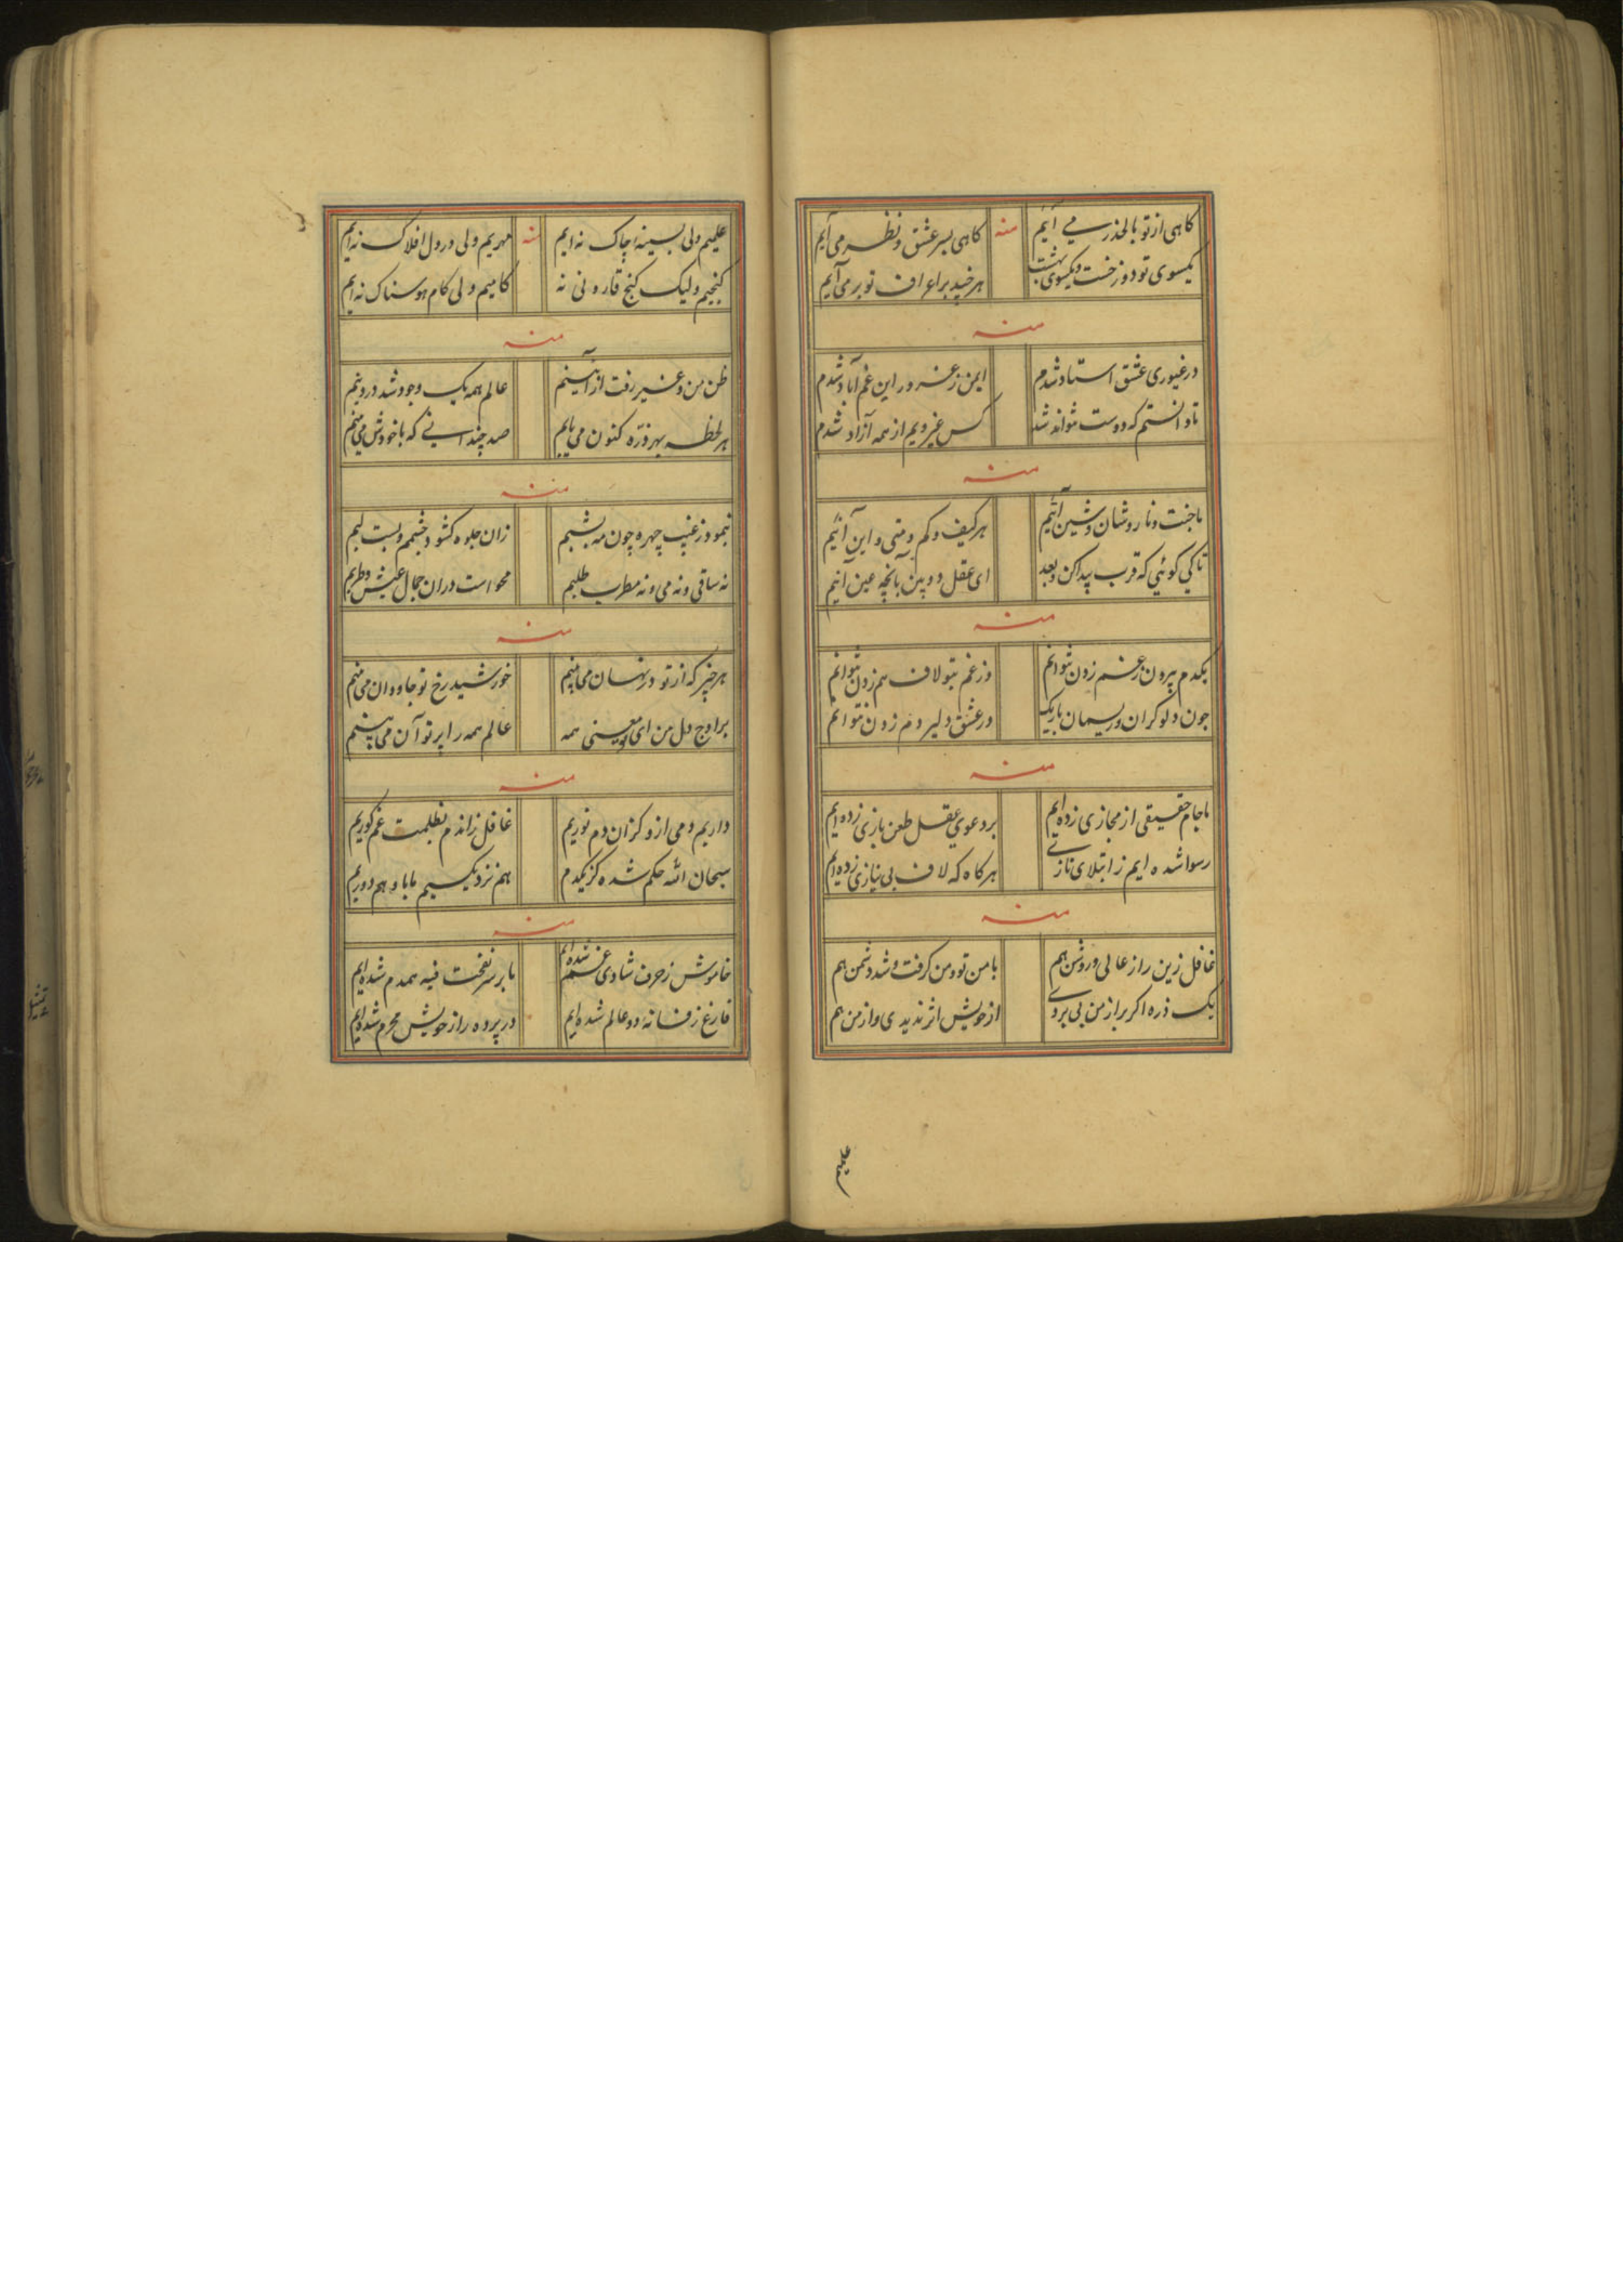 کاهی از تو بالحذر می آیم منه کاهی بسر عشق و نظر می آیم
یکسوی تو دوزخست و یکسوی بهشت هر خپد براعراف تو بر می آیم
منه
در غیوری عشق استاد شدم ایمن ز غرور این غم آباد شدم
تا دانستم که دوست نتواند شد کس غیر ویم از همه آزاد شدم
منه
ما جنت و نار و شان و شین آئیم هر کیف و کم و متی و این آئیم
تا کی کوئی که قرب پیدا کن و بعد ای عقل دو بین بآنچه عین آنیم
منه
یکدم بیرون ز غم زدن نتوانم وز غم بتو لاف هم زدن نتوانم
چون دلو کران و ریسمان باریک در عشق دلیر دم زدن نتوانم
منه
ما جام حقیقی از مجازی زده ایم بر دعوی عقل طعن بازی زده ایم
رسوا شده ایم ز ابتلای نازی هر کاه که لاف بی نیازی زده ایم
منه
غافل زین راز عالی و روشن هم با من تو و من کرفت و شد دشمن هم
یک ذره اکر براز من پی بردی از خویش اثر ندیدی و از من هم
علمیم
علمیم ولی بسینه چاک نه ایم منه مهریم ولی در دل افلاک نه ایم
کنجیم ولیک کنج قارونی نه کامیم ولی کام هوسناک نه ایم
منه
ظن من و غیر رفت از آئینم عالم همه یک وجود شد در دینم
هر لحظه بهر ذره کنون می یابم صد چندانی که با خودش می بینم
منه
نمود ز غیب چهره چون مه بشبم زان جلوه کشود چشمم و بست لبم
نه ساقی و نه می و نه مطرب طلبم محو است دران جمال عیش و طربم
منه
هر چیز که از تو در نهان می بینم خورشید رخ تو جاودان می بینم
بر اوج دل من ای تو معنی همه عالم همه را پرتو آن می بینم
منه
داریم دمی از و کزان دم نوریم غافل زاندم بظلمت غم کوریم
سبحان الله حکم شده کز یکدم هم نزدیکیم مابا و هم دوریم
منه
خاموش ز حرف شادی و غم شده ایم با بر سر نفخت فیه همدم شده ایم
فارغ ز فسانه دو عالم شده ایم در پرده راز خویش محرم شده ایم